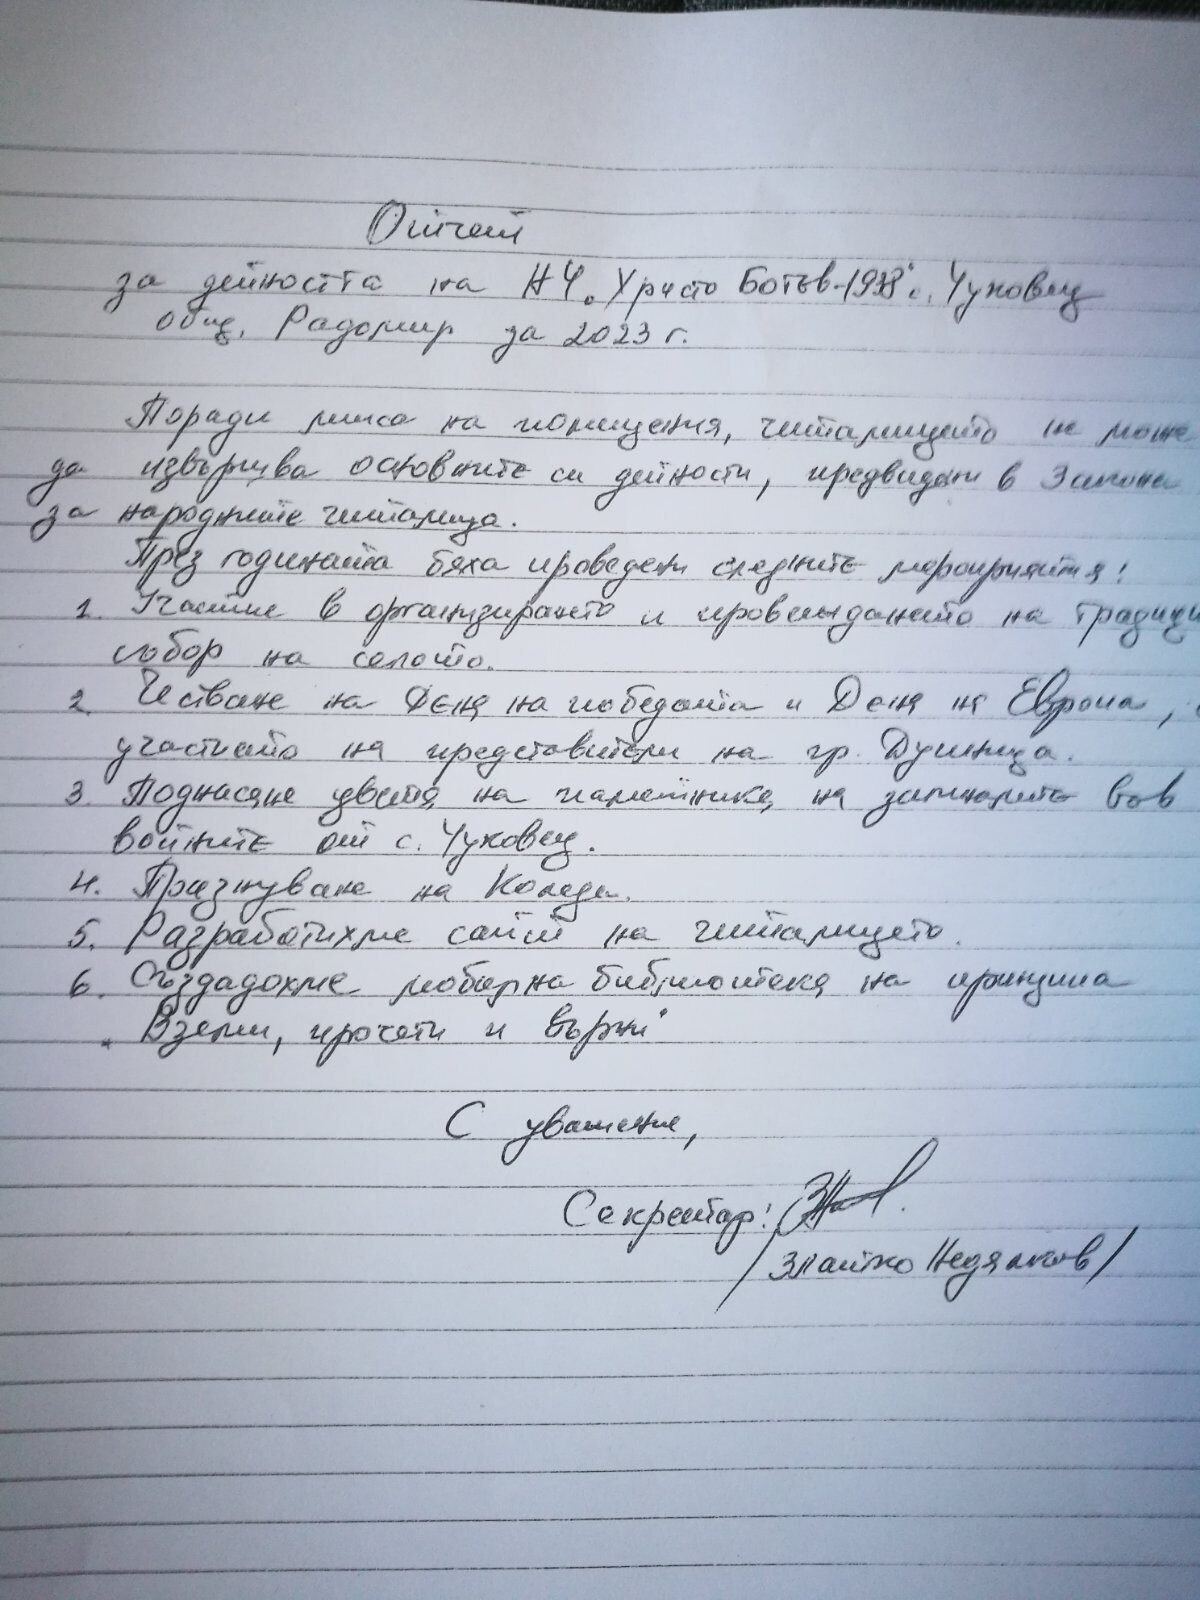 Отчет
за дейността на НЧ "Христо Ботев-1938" с. Чуковец
общ. Радомир за 2023 г.
Поради липса на помещения, читалището не може
да извършва основните си дейности, предвидени в Закона
за народните читалища.
През годината бяха проведени следните мероприятия:
1. Участие в организирането и провеждането на традици
събор на селото.
2. Честване на Деня на победата и Деня на Европа,
участието на представители на гр. Дупница.
3. Поднасяне цветя на паметника на загиналите във
войните от с. Чуковец.
4. Празнуване на Коледа.
5. Разработихме сайт на читалището.
6. Създадохме мобилна библиотека на принципа
"Вземи, прочети и върни"
С уважение,
Секретар:
/Златко Недялков/